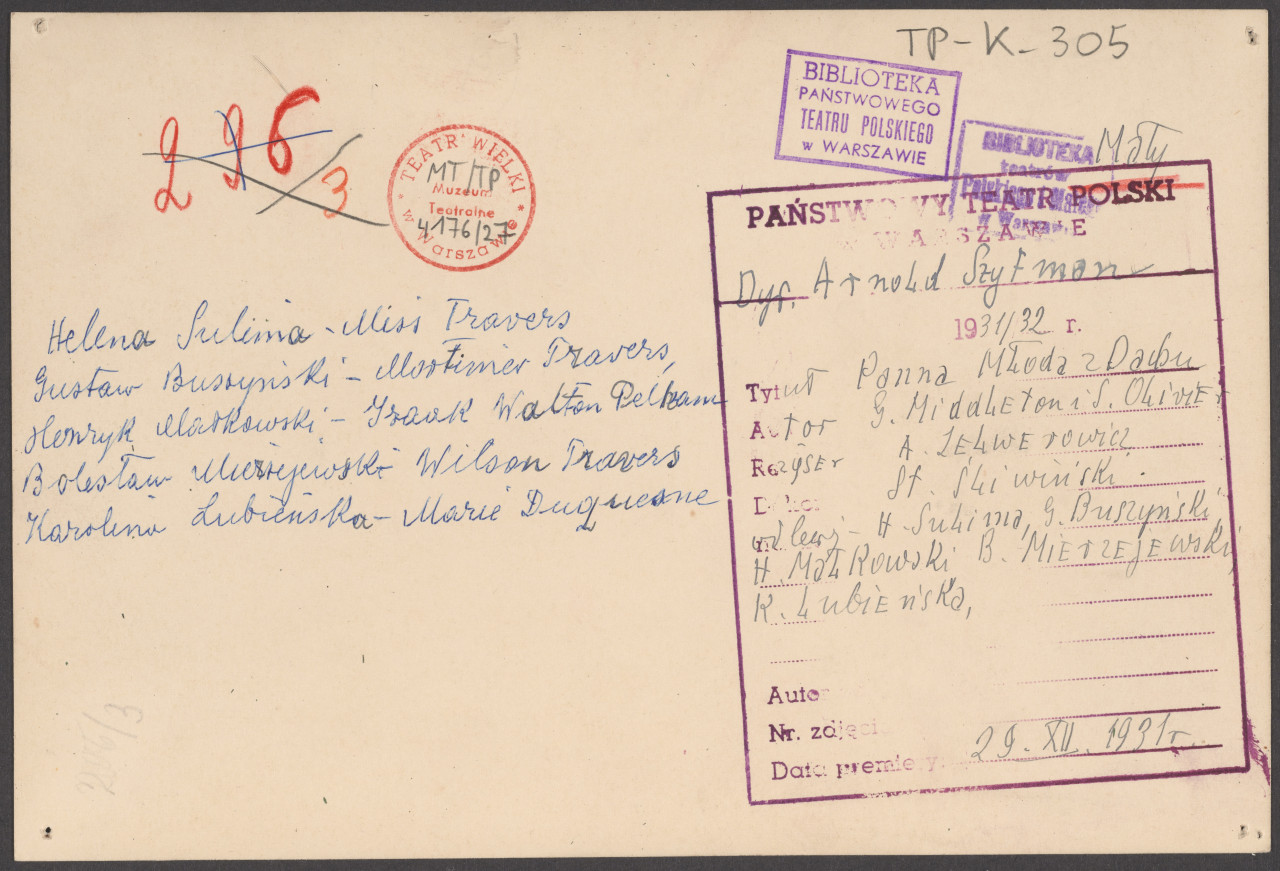 TP-K-305
296
3
TEATR WIELKI
MT/TP
Muzeum
Teatralne
4176/27
w Warszawie
BIBLIOTEKA
PAŃSTWOWEGO
TEATRU POLSKIEGO
w WARSZAWIE
BIBLIOTEKA
teatrów
w Warszawie
Mały
PAŃSTWOWY TEATR POLSKI
W WARSZAWIE
Dyr. Arnold Szyfman
1931/32 r.
Tytuł Panna Młoda z Dachu
Autor G. Middleton i S. Olivier
Reżyser A. Zelwerowicz
Dekor. St. Śliwiński.
od lewej - H. Sulima, G. Buszyński,
H. Małkowski B. Mierzejewski,
K. Lubieńska,
Autor
Nr. zdjęcia
Data premiery 29. XII. 1931 r.
Helena Sulima - Miss Travers
Gustaw Buszyński - Mortimer Travers,
Henryk Małkowski - Izaak Walton Pelham
Bolesław Mierzejewski Wilson Travers
Karolina Lubieńska - Marie Duquesne